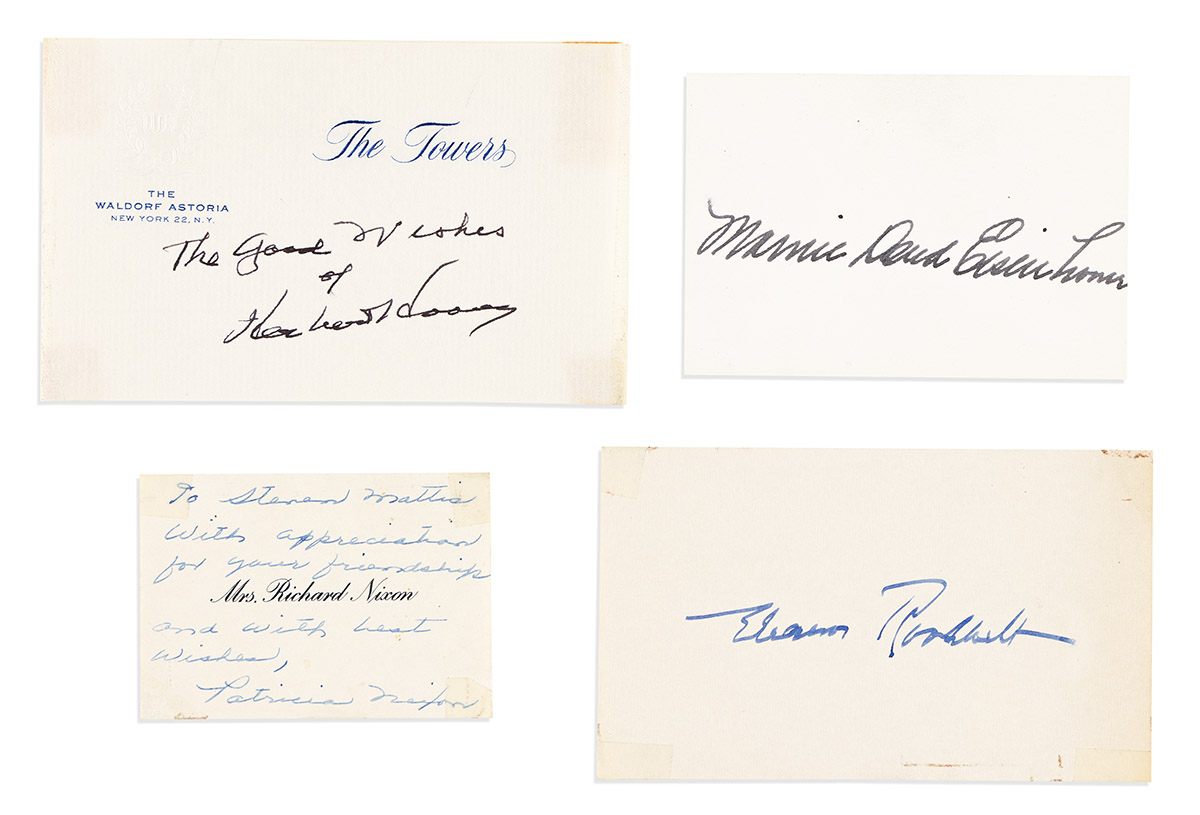 The Towers
THE
WALDORF ASTORIA
NEW YORK 22, N.Y.
The Good Wishes
of
Herbert Hoover
Mamie Doud Eisenhower
To Steven Mattis
With appreciation
for your friendship
Mrs. Richard Nixon
and with best
wishes,
Patricia Nixon
Eleanor Roosevelt